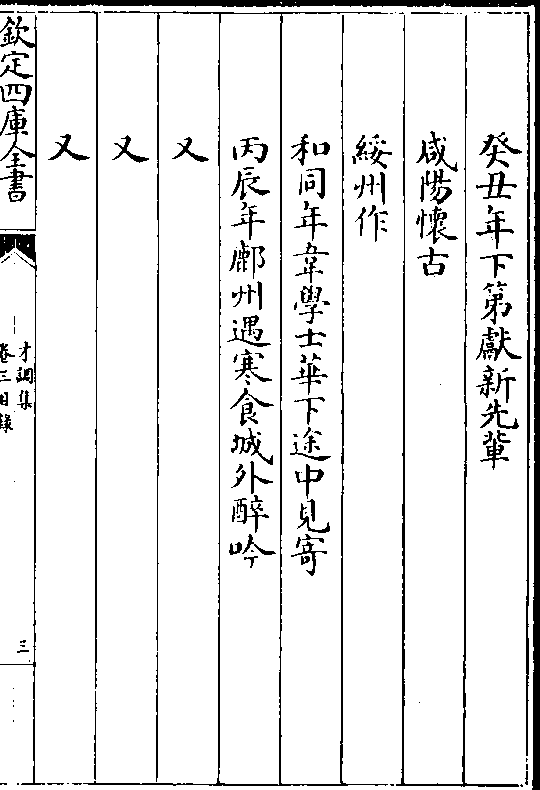 癸丑年下第獻新先輩
咸陽懷古
綏州作
和同年韋學士華下途中見寄
丙辰年鄜州遇寒食城外醉吟
又
又
又
欽定四庫全書
才調集
卷三目錄
三